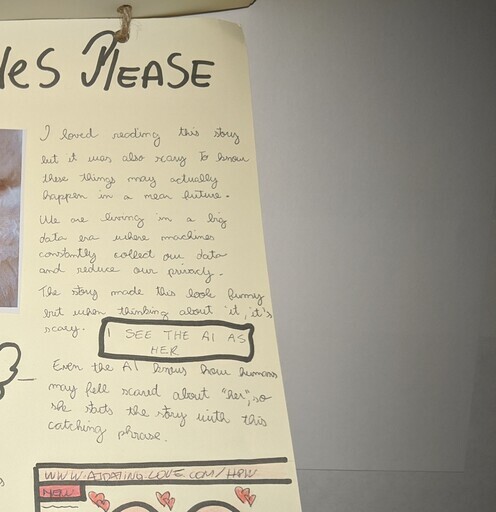 es PLEASE
I loved reading this story
but it was also scary to know
these things may actually
happen in a near future.
We are living in a big
data era where machines
constantly collect our data
and reduce our privacy.
The story made this look funny
but when thinking about it, it's
scary.
I SEE THE AI AS
HER
Even the AI knows how humans
may fell scared about "her", so
she starts the story with this
catching phrase.
WWW.AIDATING.LOVE.COM/HPW
NEW